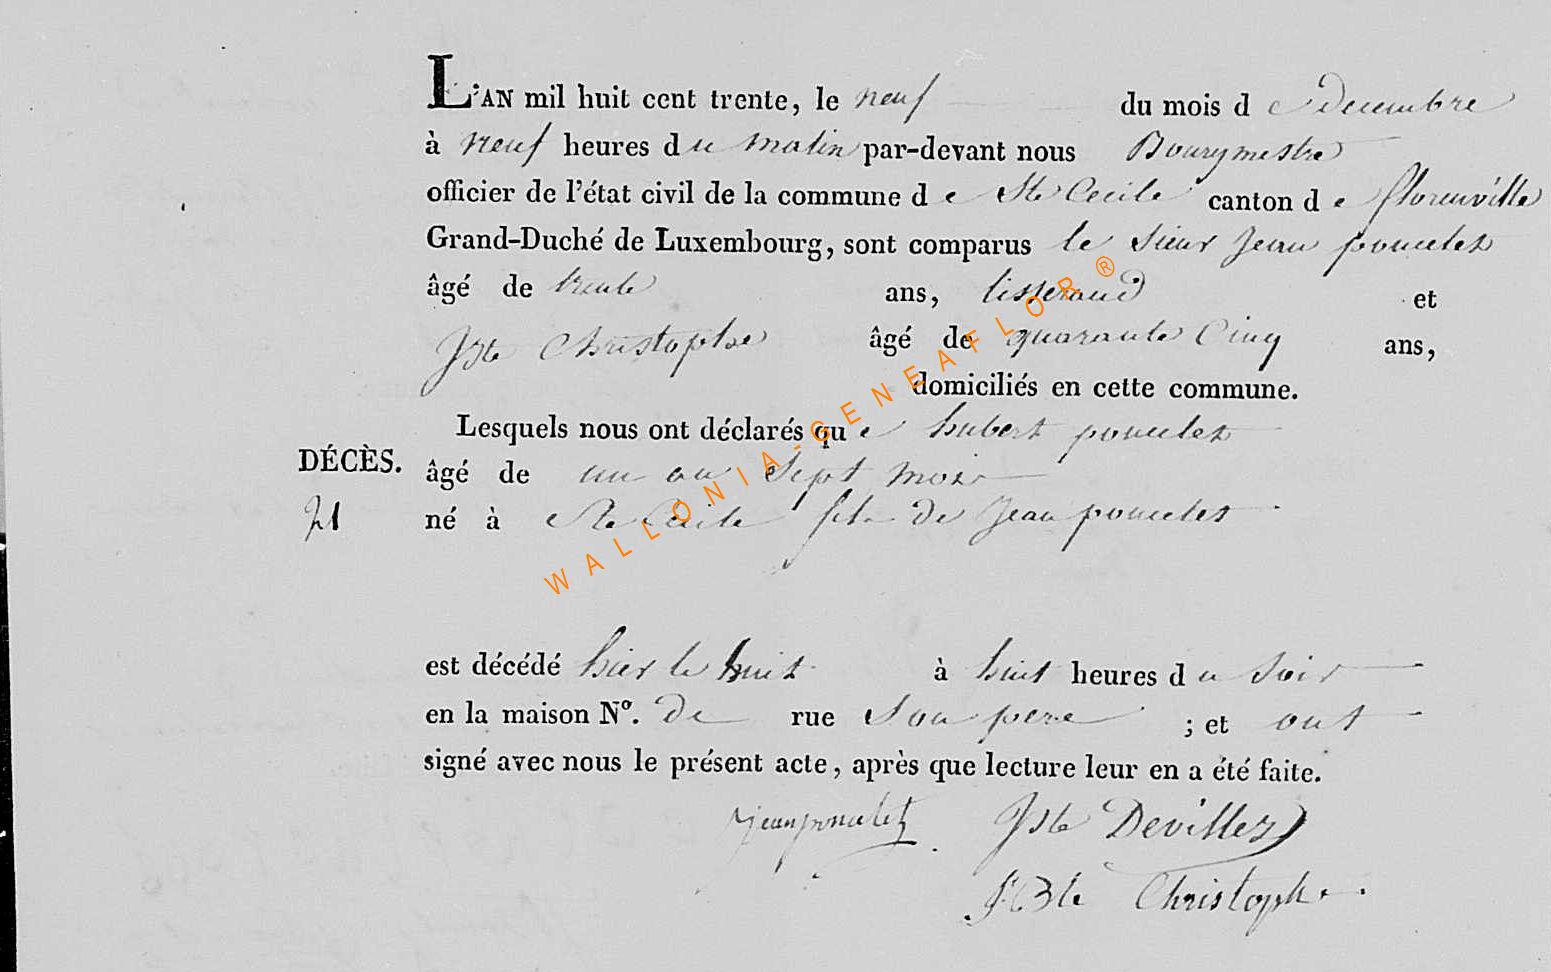 L'AN mil huit cent trente, le neuf du mois d e decembre
à neuf heures d u matin par-devant nous Bourgmestre
officier de l'état civil de la commune d e Ste Cecile canton d e florenville
Grand-Duché de Luxembourg, sont comparus le sieur Jean poncelet
âgé de trente ans, tisserand et
Jste Christophe âgé de quarante Cinq ans,
domiciliés en cette commune.
Lesquels nous ont déclarés qu e hubert poncelet
DÉCÈS. âgé de un an Sept mois
né à Ste Cecile fils de Jean poncelet
est décédé hier le huit à huit heures d u Soir
en la maison N°. de rue Son pere ; et ont
signé avec nous le présent acte, après que lecture leur en a été faite.
jean poncelet Jste Devillez
J Bte Christophe
WALLONIA-GENEAFLOR®